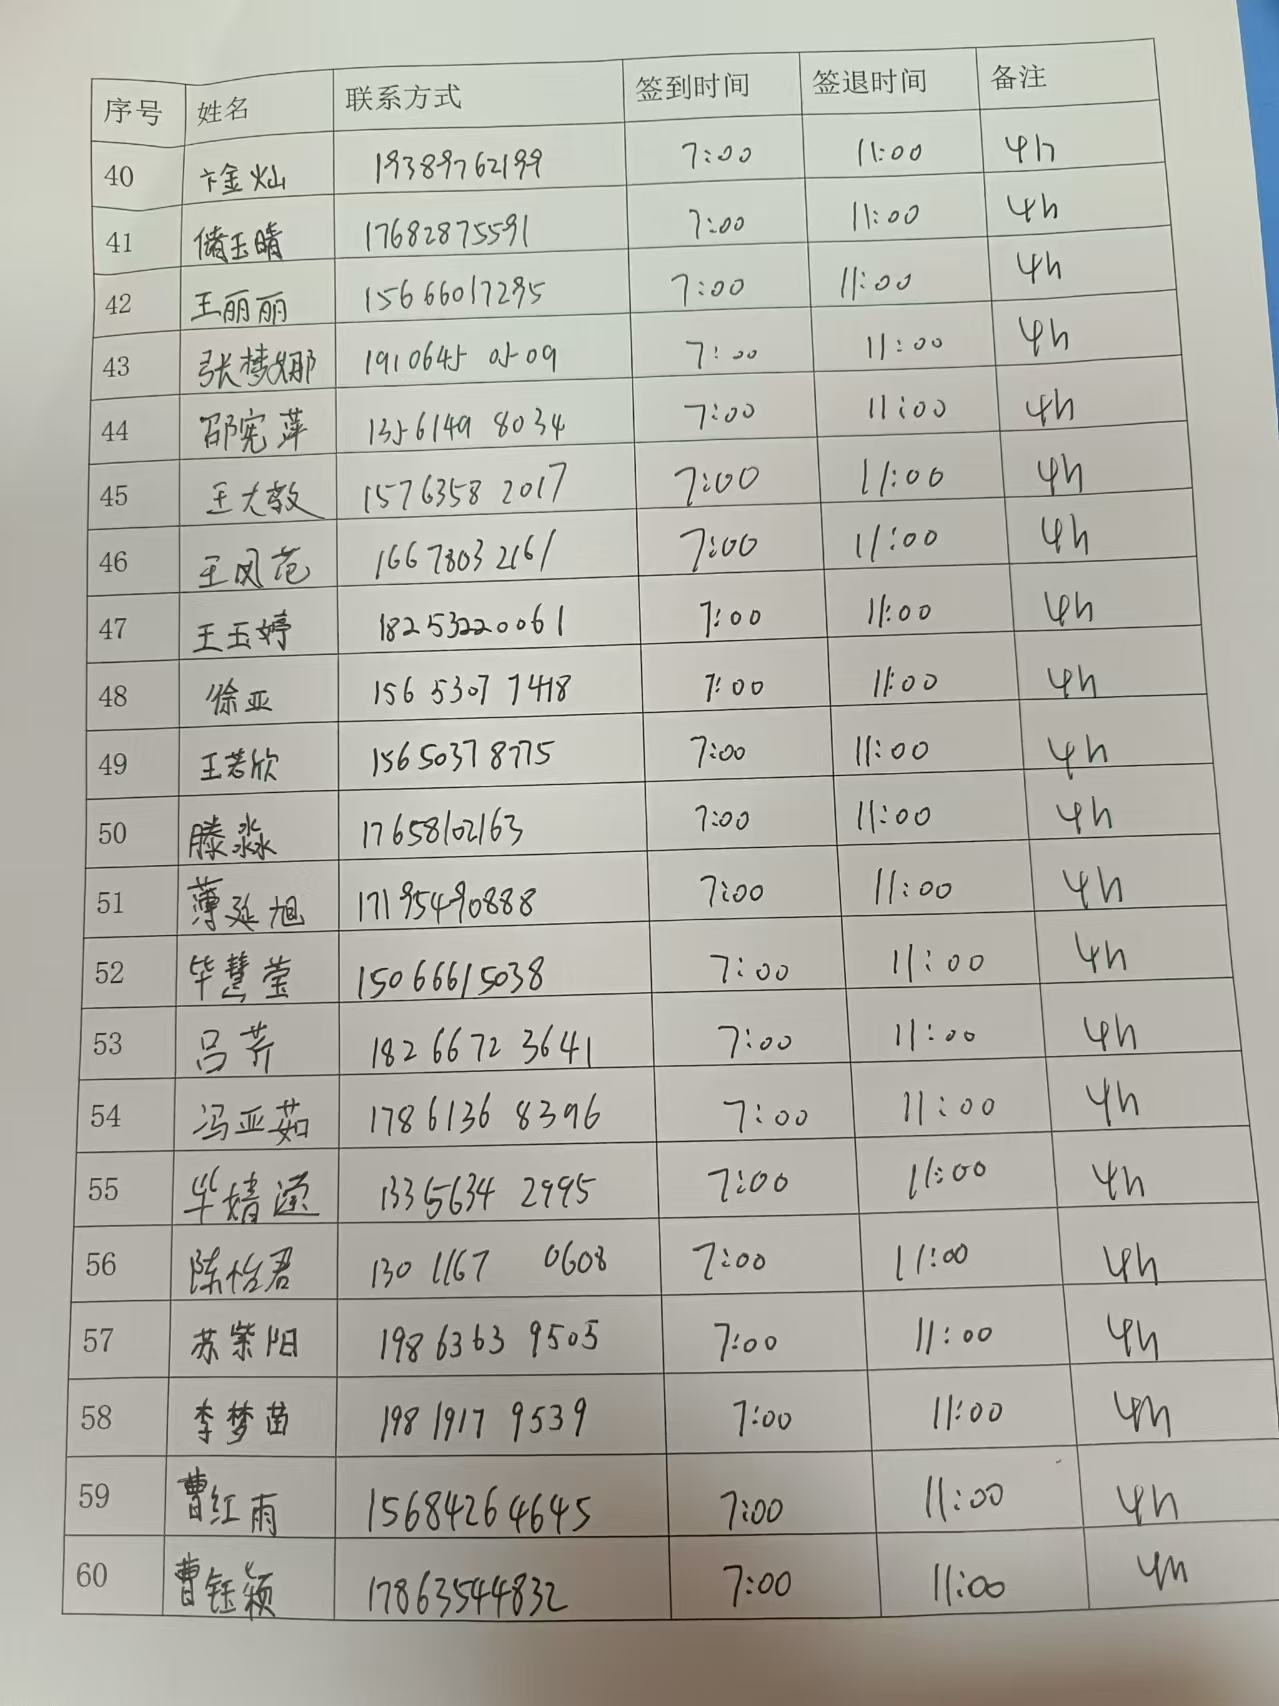 序号 姓名 联系方式 签到时间 签退时间 备注
40 卞金灿 19389762199 7:00 11:00 4h
41 储玉晴 17682875591 7:00 11:00 4h
42 王丽丽 15666017295 7:00 11:00 4h
43 张梦娜 19106450509 7:00 11:00 4h
44 邵宪萍 1356149 8034 7:00 11:00 4h
45 王大敩 1576358 2017 7:00 11:00 4h
46 王凤范 1667803 2161 7:00 11:00 4h
47 王玉婷 18253220061 7:00 11:00 4h
48 徐亚 156 5307 7418 7:00 11:00 4h
49 王若欣 156 5037 8775 7:00 11:00 4h
50 滕淼 17658102163 7:00 11:00 4h
51 薄延旭 17195490888 7:00 11:00 4h
52 毕慧莹 15066615038 7:00 11:00 4h
53 吕荠 182 6672 3641 7:00 11:00 4h
54 冯亚茹 178 6136 8396 7:00 11:00 4h
55 毕婧滢 133 5634 2995 7:00 11:00 4h
56 陈怡君 130 1167 0608 7:00 11:00 4h
57 苏紫阳 198 6363 9505 7:00 11:00 4h
58 李梦苗 198 1917 9539 7:00 11:00 4h
59 曹红雨 15684264645 7:00 11:00 4h
60 曹钰颖 17863544832 7:00 11:00 4h